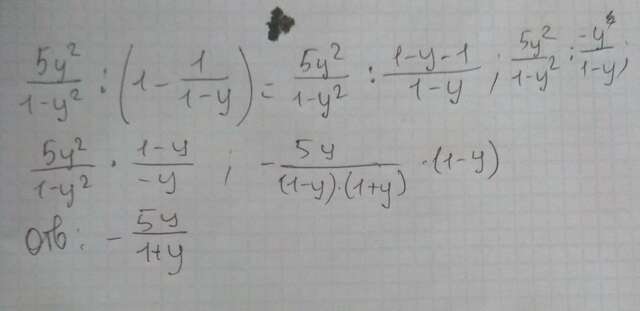 5y²/(1-y²) : (1 - 1/(1-y)) = 5y²/(1-y²) : (1-y-1)/(1-y) ; 5y²/(1-y²) : -y/(1-y) ;
5y²/(1-y²) · (1-y)/(-y) ; - 5y/((1-y)·(1+y)) · (1-y)
Отв: - 5y/(1+y)